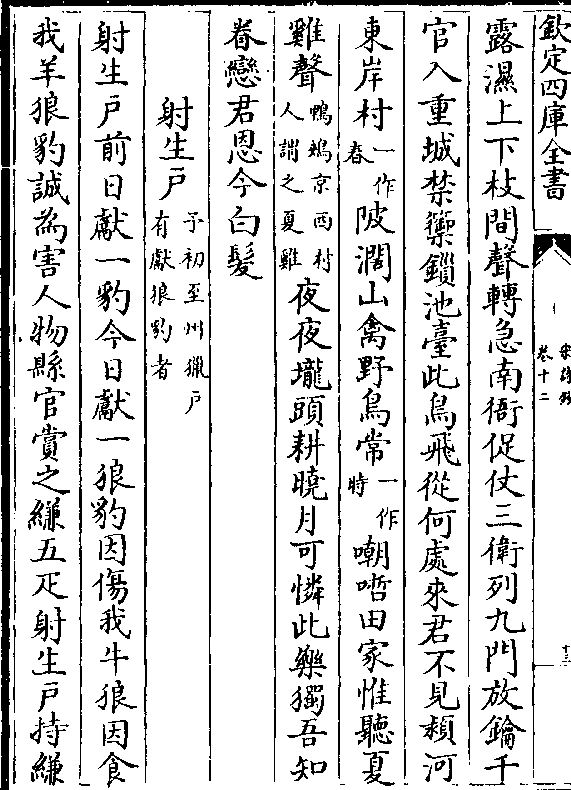 欽定四庫全書
宋詩鈔
卷十二
十三
露濕上下枝間聲轉急南衙促仗三衛列九門放鑰千
官入重城禁籞鎖池臺此鳥飛從何處來君不見潁河
東岸村一作春陂濶山禽野鳥常一作時嘲哳田家惟聽夏
雞聲鴨鵊京西村人謂之夏雞夜夜壠頭耕曉月可憐此樂獨吾知
眷戀君恩今白髮
射生戶予初至州獵戶有獻狼豹者
射生戶前日獻一豹今日獻一狼豹因傷我牛狼因食
我羊狼豹誠為害人物縣官賞之縑五疋射生戶持縑